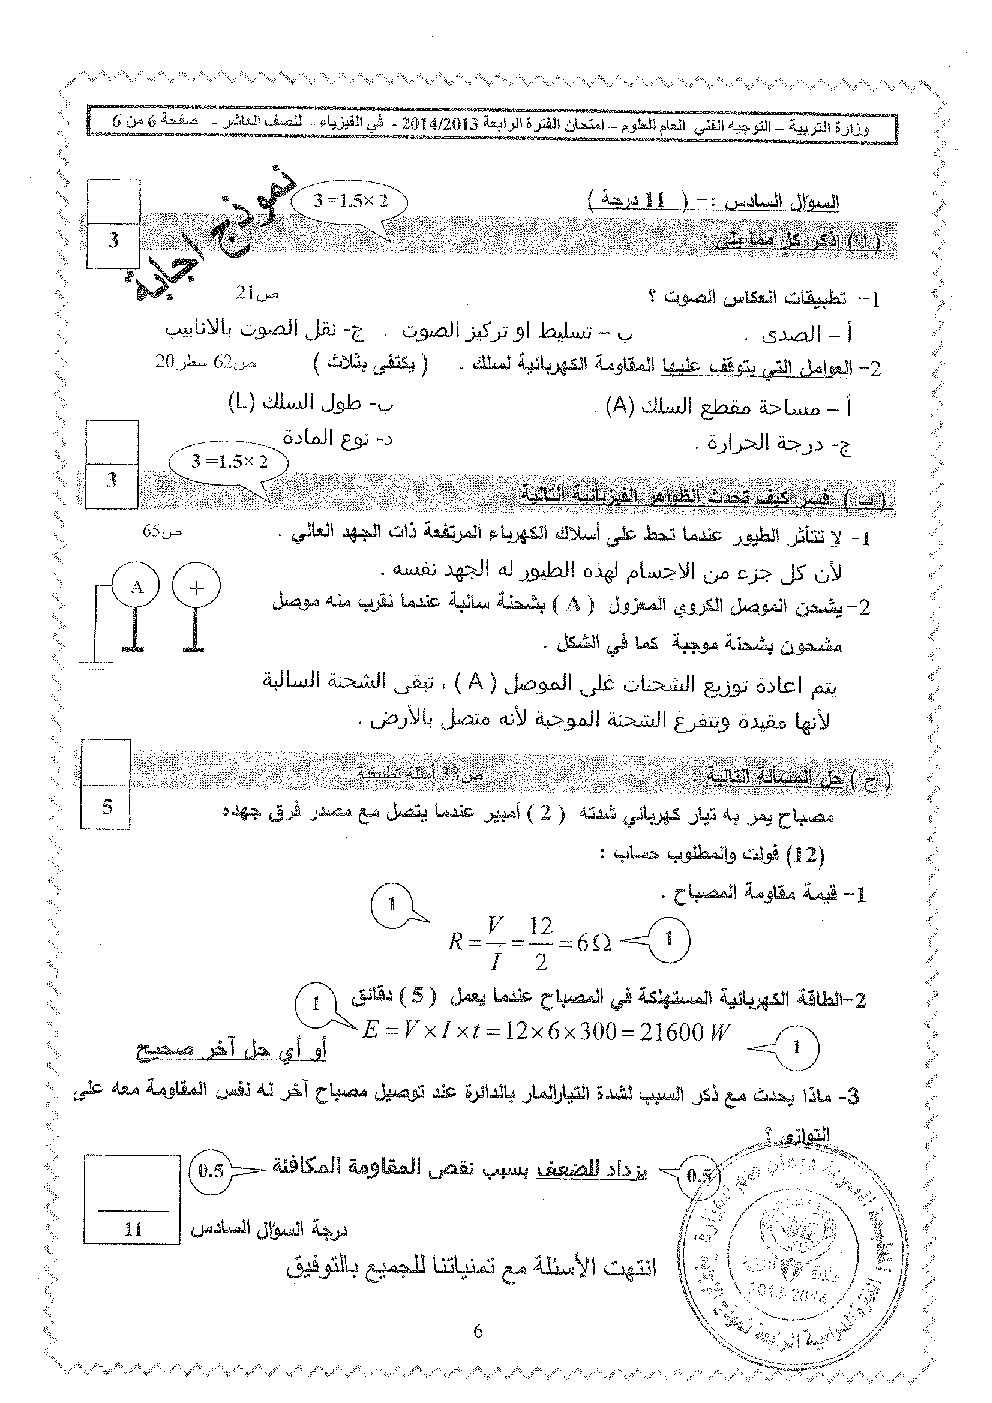 وزارة التربية – التوجيه الفني العام للعلوم – امتحان الفترة الرابعة 2014/2013 - في الفيزياء - لنصف العاشر - صفحة 6 من 6
نموذج اجابة
السؤال السادس :- ( 11 درجة )
3 =1.5× 2
3
( أ ) اذكر كل مما يلي
1- تطبيقات انعكاس الصوت ؟ ص21
أ – الصدى . ب – تسليط او تركيز الصوت . ج- نقل الصوت بالانابيب
2- العوامل التي يتوقف عليها المقاومة الكهربائية لسلك . ( يكتفى بثلاث ) ص62 سطر20
أ – مساحة مقطع السلك (A) . ب- طول السلك (L)
ج- درجة الحرارة . د- نوع المادة
3 =1.5× 2
3
( ب ) فسر كيف تحدث الظواهر الفيزيائية التالية
1- لا تتأثر الطيور عندما تحط على أسلاك الكهرباء المرتفعة ذات الجهد العالي . ص65
لأن كل جزء من الاجسام لهذه الطيور له الجهد نفسه .
2- يشحن الموصل الكروي المعزول ( A ) بشحنة سالبة عندما نقرب منه موصل
مشحون بشحنة موجبة كما في الشكل .
A +
يتم اعادة توزيع الشحنات على الموصل ( A ) ، تبقى الشحنة السالبة
لأنها مقيدة وتتفرغ الشحنة الموجبة لأنه متصل بالأرض .
( ج ) حل المسألة التالية
5
مصباح يمر به تيار كهربائي شدته ( 2 ) أمبير عندما يتصل مع مصدر فرق جهده
(12) فولت والمطلوب حساب :
1- قيمة مقاومة المصباح .
1
R = V/I = 12/2 = 6Ω
1
2-الطاقة الكهربائية المستهلكة في المصباح عندما يعمل ( 5 ) دقائق
1
E = V × I × t = 12 × 6 × 300 = 21600 W
1
أو أي حل آخر صحيح
3- ماذا يحدث مع ذكر السبب لشدة التيارالمار بالدائرة عند توصيل مصباح آخر له نفس المقاومة معه على
التوازي ؟
0.5 يزداد للضعف بسبب نقص المقاومة المكافئة 0.5
11 درجة السؤال السادس
انتهت الأسئلة مع تمنياتنا للجميع بالتوفيق
2013-2014
6